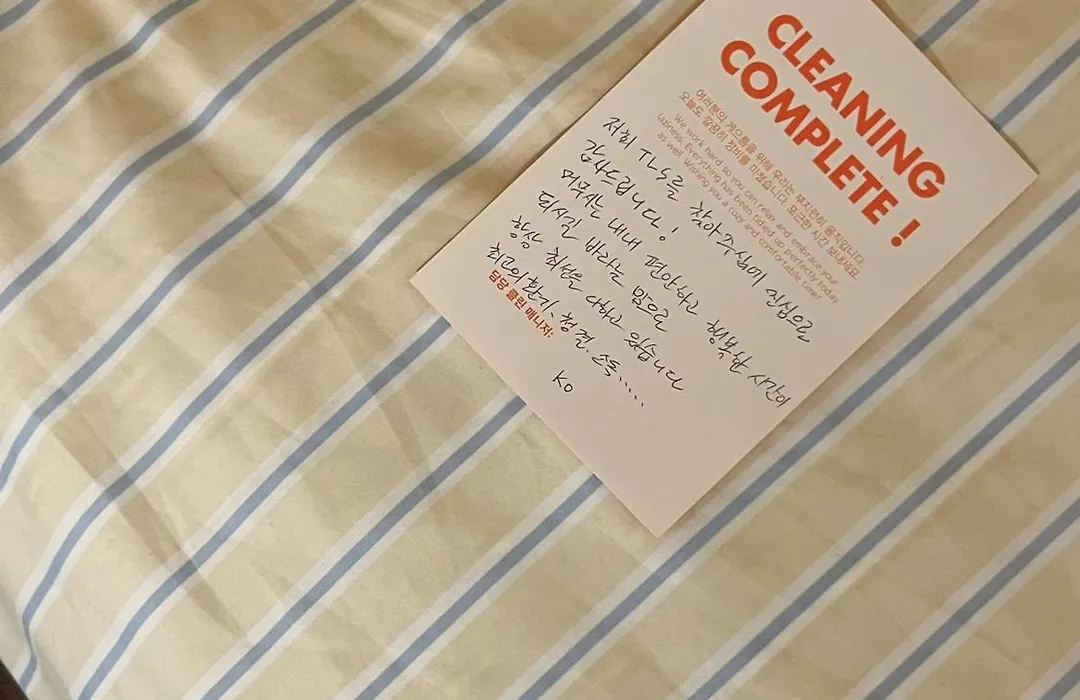 CLEANING
COMPLETE !
여러분의 게으름을 위해 우리는 부지런히 움직입니다
오늘도 깔끔히 정비를 마쳤습니다 포근한 시간 보내세요
We work hard so you can relax and embrace your
laziness. Everything has been tidied up perfectly today
as well. Wishing you a cozy and comfortable time!
저희 TLS를 찾아주심에 진심으로
감사드립니다!
머무시는 내내 편안하고 행복한 시간이
되시길 바라는 맘으로
항상 최선을 다하고 있습니다
최고의 환기、청결·소독......
담당 클린 매니저:
KO